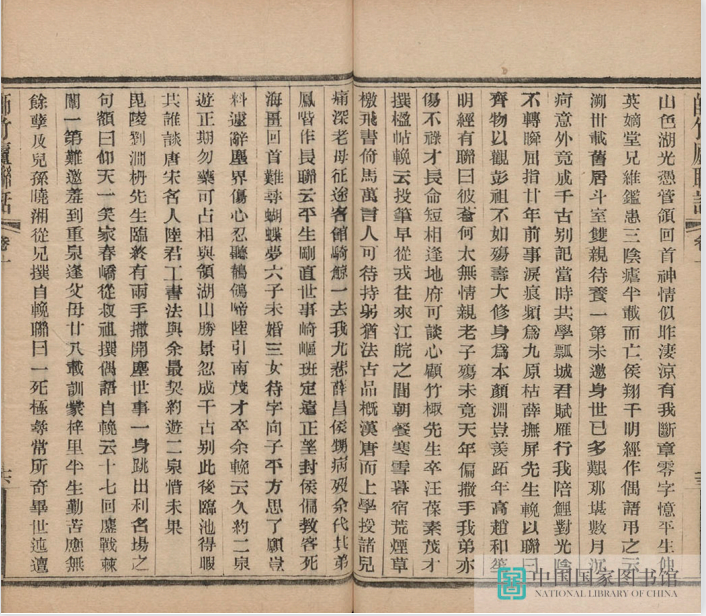 山色湖光憑管領回首神情似昨淒涼有我斷章零字憶平生仲
英嫡堂兄維鑑患三陰瘧半載而亡侯翔千明經作偶語弔之云
溯卅載舊居斗室雙親待養一第未邀身世已多艱那堪數月沉
疴意外竟成千古别記當時共學瓢城君賦雁行我陪鯉對光陰
不轉瞬屈指廿年前事淚痕頻爲九原枯薛撫屏先生輓以聯曰
齊物以觀彭祖不如殤壽大修身爲本顏淵豈羨跖年高趙和笙
明經有聯曰彼蒼何太無情親老子殤未竟天年偏撒手我弟亦
傷不祿才長命短相逢地府可談心顧竹先生卒汪葆素茂才
撰楹帖輓云投筆早從戎往來江皖之間朝餐寒雪暮宿荒煙草
檄飛書倚馬萬言人可待持躬猶法古品概漢唐而上學授諸兒
痛深老母征途客館崎鯨一去我尤悲薛昌侯甥病歿余代其弟
鳳喈作長聯云平生剛直世事崎嶇班定遠正望封侯偏教客死
海疆回首難尋蝴蝶夢六子未婚三女待字向子平方思了願豈
料遽辭塵界傷心忍聽鶺鴒啼陸引南茂才卒余輓云久約二泉
遊正期勿藥可占相與領湖山勝景忽成千古别此後臨池得暇
共誰談唐宋名人陸君工書法與余最契約遊二泉惜未果
毘陵劉澗枬先生臨終有兩手撒開塵世事一身跳出利名場之
句額曰仰天一笑家春嶠從叔祖撰偶語自輓云十七回鏖戰棘
闈一第難邀羞到重泉逢父母廿八載訓蒙梓里半生勤苦應無
餘孽及兒孫曉湘從兄撰自輓聯曰一死極尋常所奇畢世迍邅
師竹廬聯話 卷一
中国国家图书馆
NATIONAL LIBRARY OF CHINA